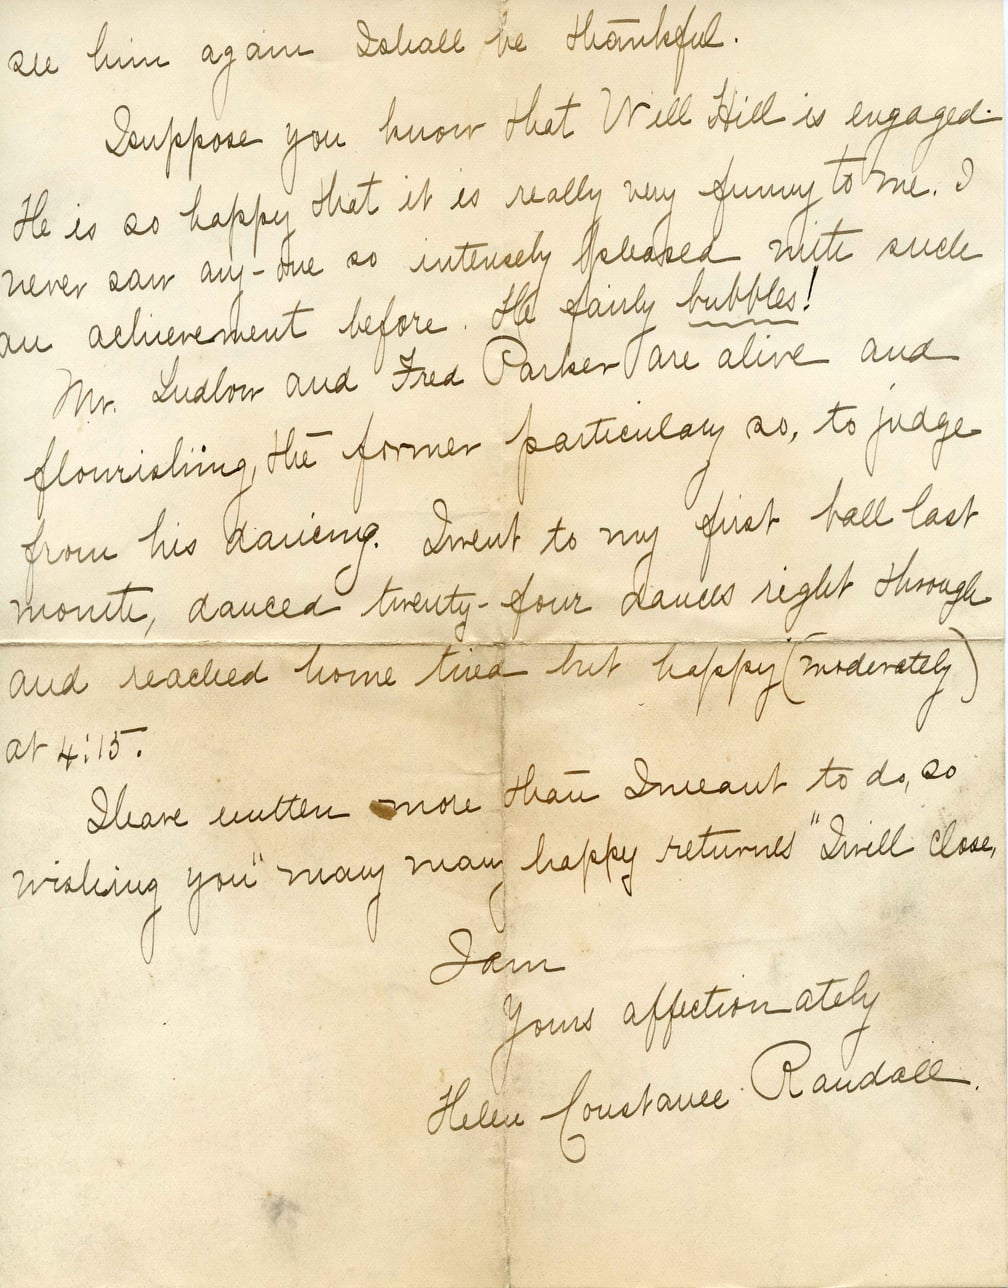 see him again I shall be thankful.
I suppose you know that Will Hill is engaged.
He is so happy that it is really very funny to me. I
never saw any-one so intensely pleased with such
an achievement before. He fairly bubbles!
Mr. Ludlow and Fred Parker are alive and
flourishing, the former particulary so, to judge
from his dancing. I went to my first ball last
month, danced twenty-four dances right through
and reached home tired but happy (moderately)
at 4:15.
I have written more than I meant to do, so
wishing you "many many happy returnes" I will close,
I am
Yours affectionately
Helen Constance Randall.